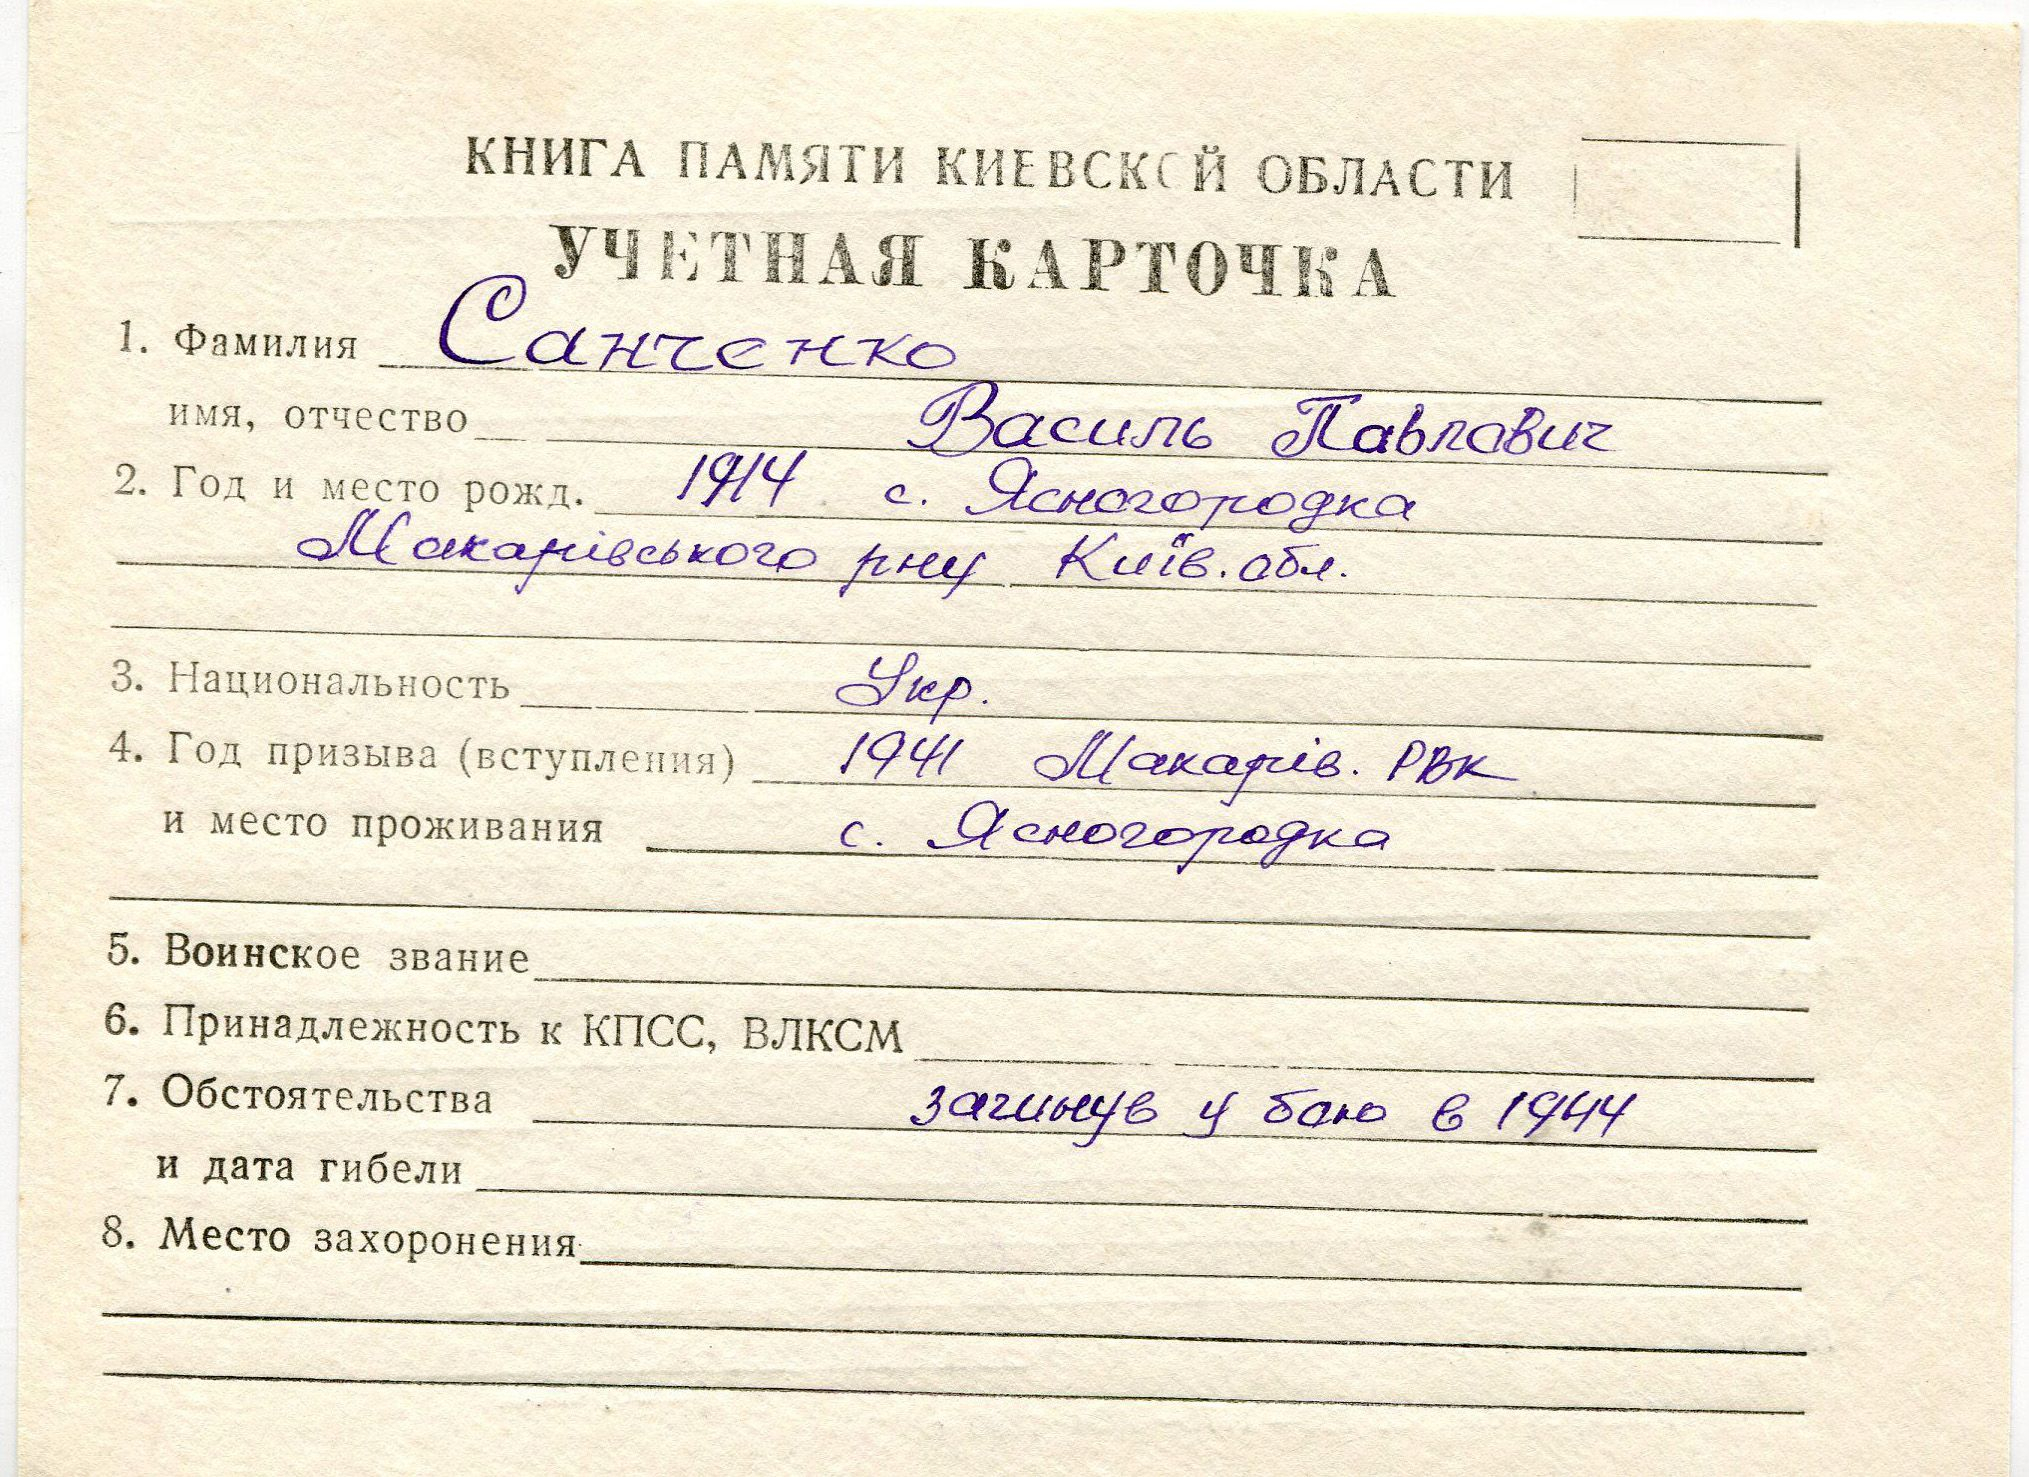 КНИГА ПАМЯТИ КИЕВСКОЙ ОБЛАСТИ
УЧЕТНАЯ КАРТОЧКА
1. Фамилия Санченко
имя, отчество Василь Павлович
2. Год и место рожд. 1914 с. Ясногородка
Макарівського рну Київ. обл.
3. Национальность Укр.
4. Год призыва (вступления) 1941 Макарів. РВК
и место проживания с. Ясногородка
5. Воинское звание
6. Принадлежность к КПСС, ВЛКСМ
7. Обстоятельства загинув у бою в 1944
и дата гибели
8. Место захоронения